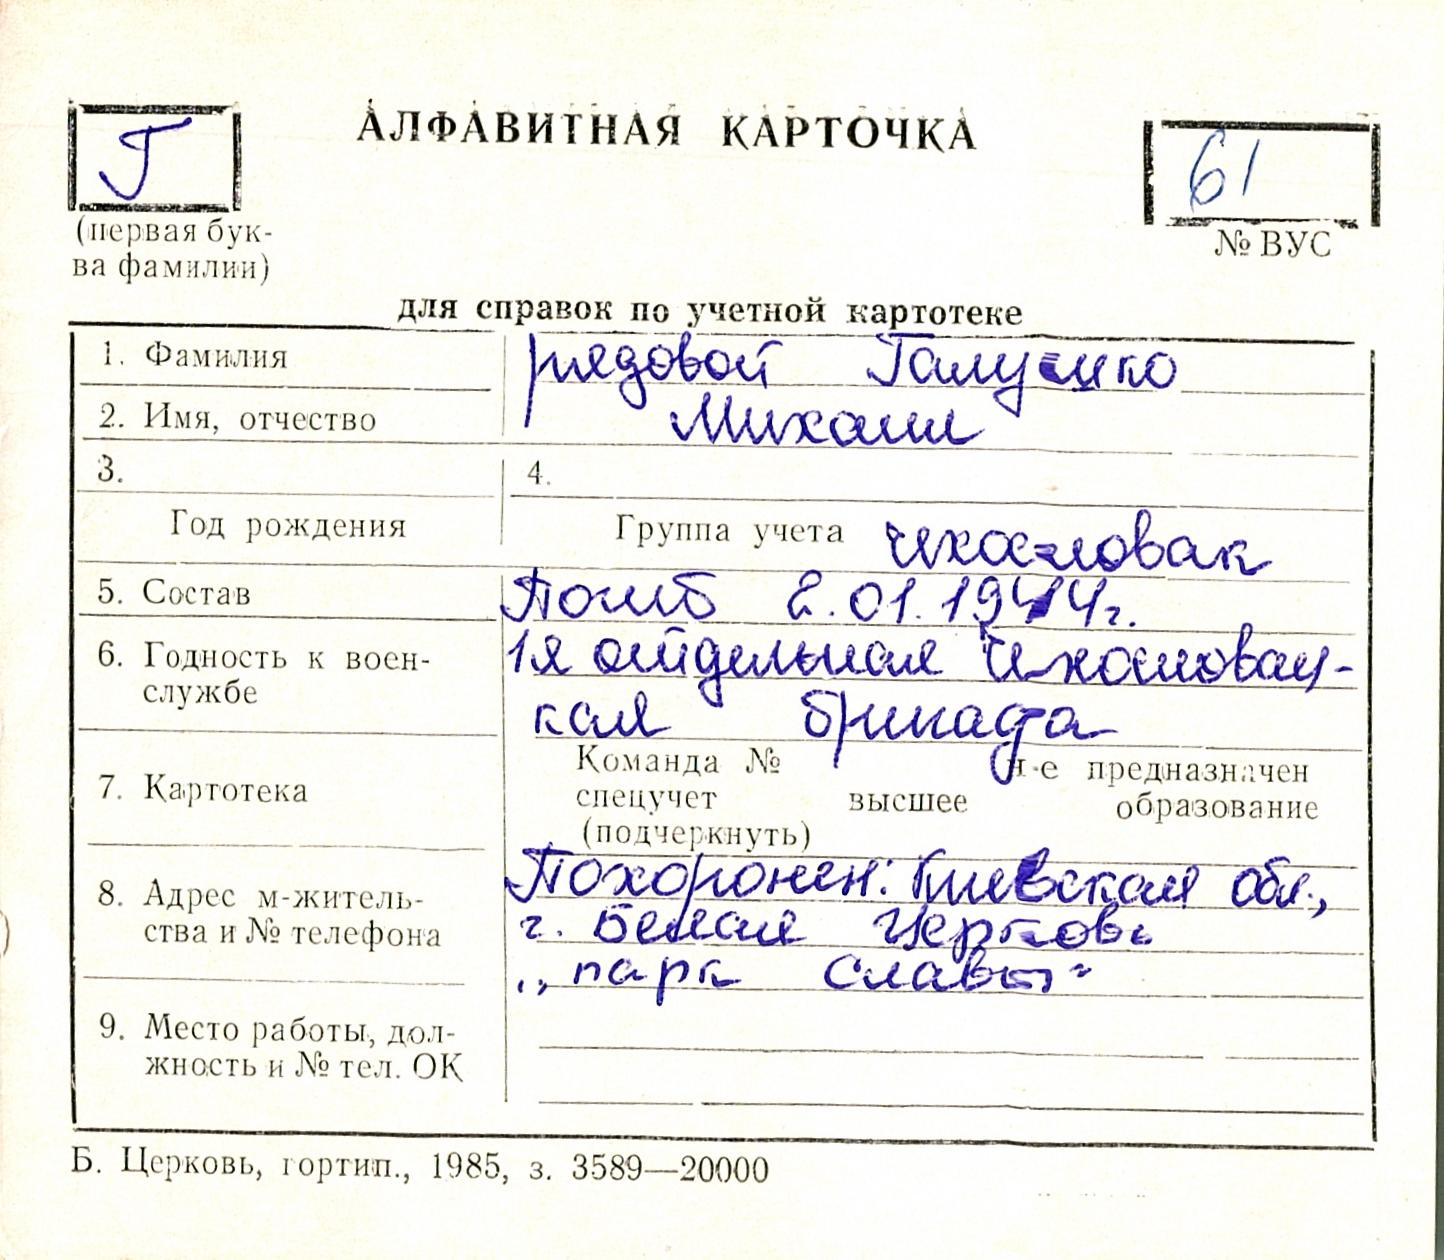 Г
АЛФАВИТНАЯ КАРТОЧКА
61
(первая бук-
ва фамилии)
№ ВУС
для справок по учетной картотеке
1. Фамилия
рядовой Галушко
2. Имя, отчество
Михаил
3.
4.
Год рождения
Группа учета чехословак
5. Состав
Погиб 2.01.1944г.
6. Годность к воен-
службе
1я отдельная Чехословац-
кая бригада
7. Картотека
Команда № н-е предназначен
спецучет высшее образование
(подчеркнуть)
8. Адрес м-житель-
ства и № телефона
Похоронен: Киевская обл.,
г. Белая Церковь
„парк Славы"
9. Место работы, дол-
жность и № тел. ОК
Б. Церковь, гортип., 1985, з. 3589—20000